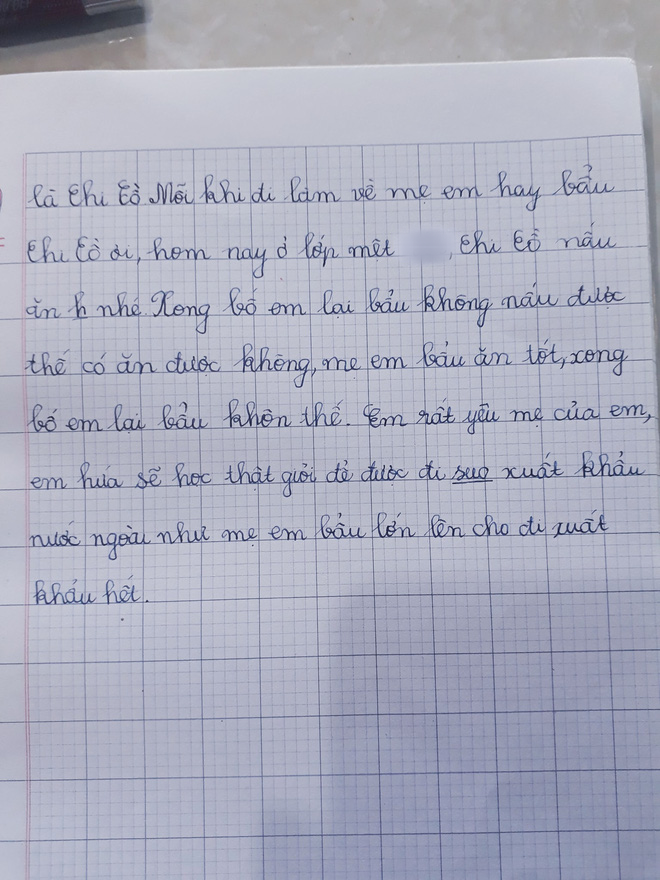 là Chi Cồ Mỗi khi đi làm về mẹ em hay bẩu
Chi Cồ ơi, hom nay ở lớp mệt , Chi Cồ nấu
ăn h nhé Xong bố em lại bẩu không nấu được
thế có ăn được không, mẹ em bẩu ăn tốt, xong
bố em lại bẩu khôn thế. Em rất yêu mẹ của em,
em hứa sẽ học thật giỏi để được đi suọ xuất khẩu
nước ngoài như mẹ em bẩu lớn lên cho đi xuất
khẩu hết.